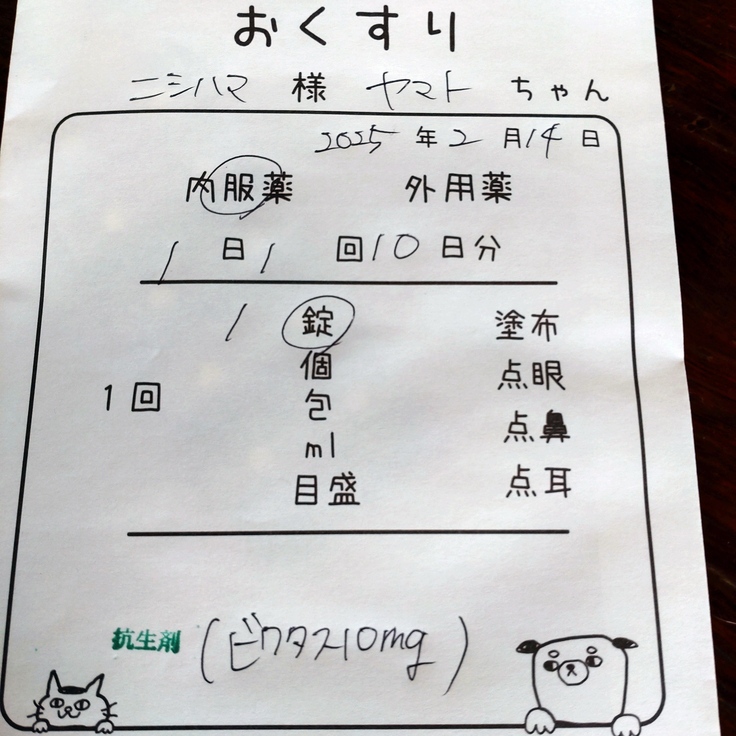 おくすり
ニシハマ 様 ヤマト ちゃん
2025 年 2 月 14 日
内服薬 外用薬
1 日 1 回 10 日分
1 錠 塗布
個 点眼
1回 包 点鼻
ml
目盛 点耳
抗生剤 (ビクタス10mg)